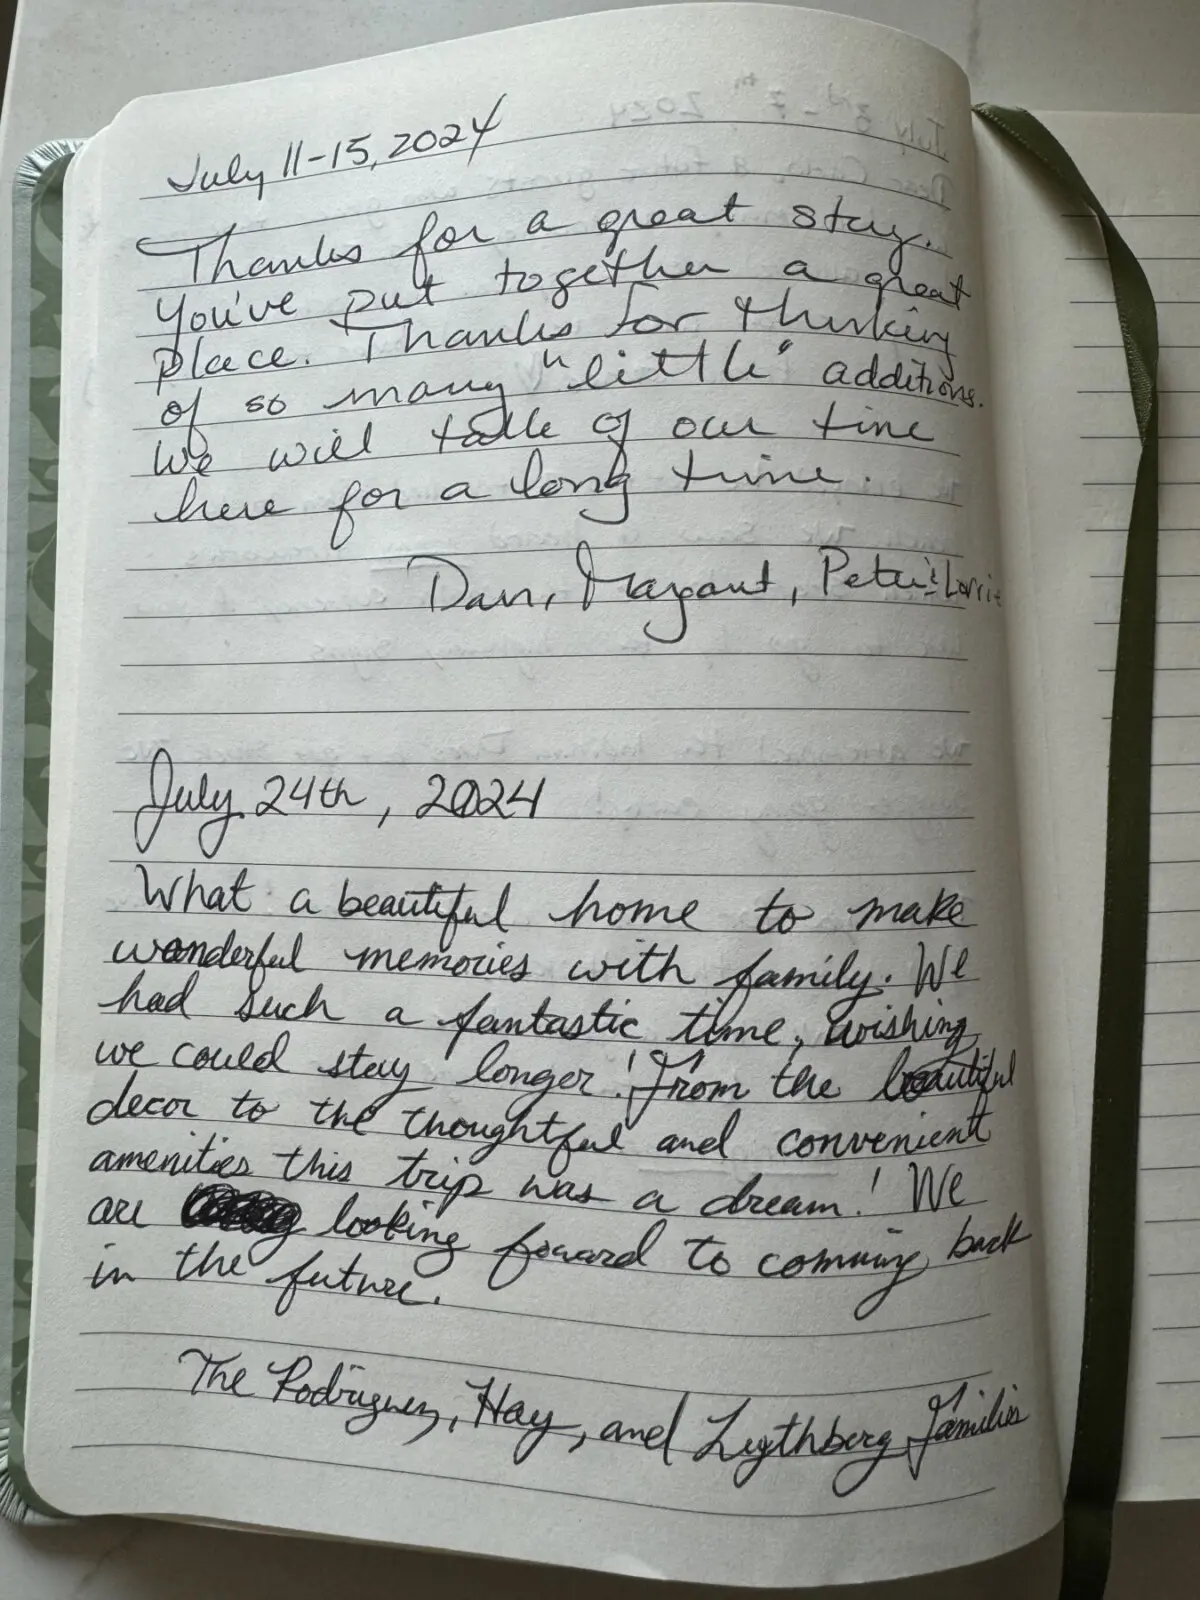 July 11-15, 2024
Thanks for a great stay.
You've put together a great
place. Thanks for thinking
of so many "little" additions.
We will talk of our time
here for a long time.
Dan, Margaret, Peter & Lorrie
July 24th, 2024
What a beautiful home to make
wonderful memories with family. We
had such a fantastic time, wishing
we could stay longer! From the beautiful
decor to the thoughtful and convenient
amenities this trip was a dream! We
are looking forward to coming back
in the future.
The Rodriguez, Hay, and Lygthberg Families